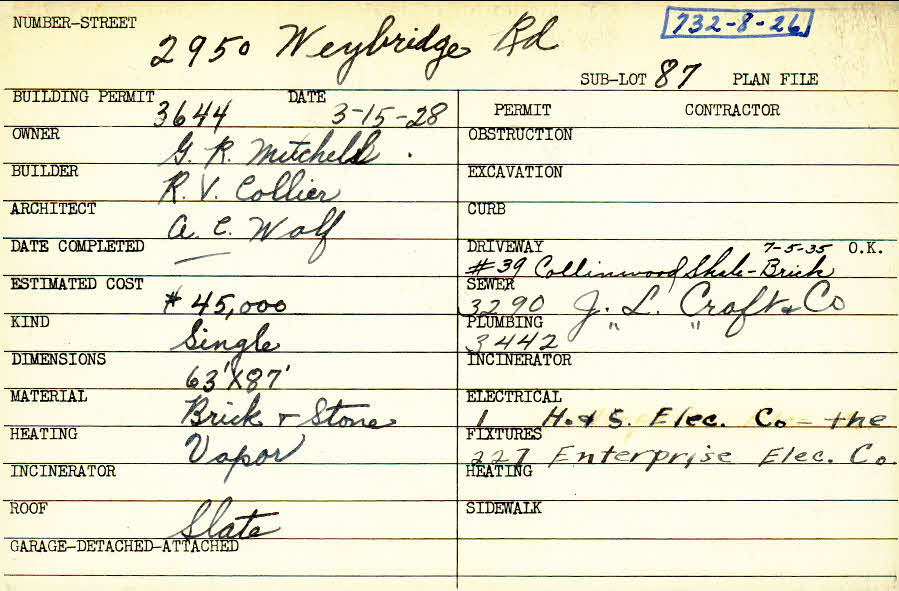 NUMBER-STREET 2950 Weybridge Rd 732-8-26
SUB-LOT 87 PLAN FILE
BUILDING PERMIT 3644 DATE 3-15-28
OWNER G. R. Mitchell
BUILDER R. V. Collier
ARCHITECT A. C. Wolf
DATE COMPLETED —
ESTIMATED COST $45,000
KIND Single
DIMENSIONS 63'X87'
MATERIAL Brick & Stone
HEATING Vapor
INCINERATOR
ROOF Slate
GARAGE-DETACHED-ATTACHED
PERMIT CONTRACTOR
OBSTRUCTION
EXCAVATION
CURB
DRIVEWAY 7-5-35 O.K.
#39 Collinwood Shale-Brick
SEWER
3290 J. L. Craft & Co
PLUMBING " "
3442
INCINERATOR
ELECTRICAL
1 H. & S. Elec. Co - the
FIXTURES
227 Enterprise Elec. Co.
HEATING
SIDEWALK